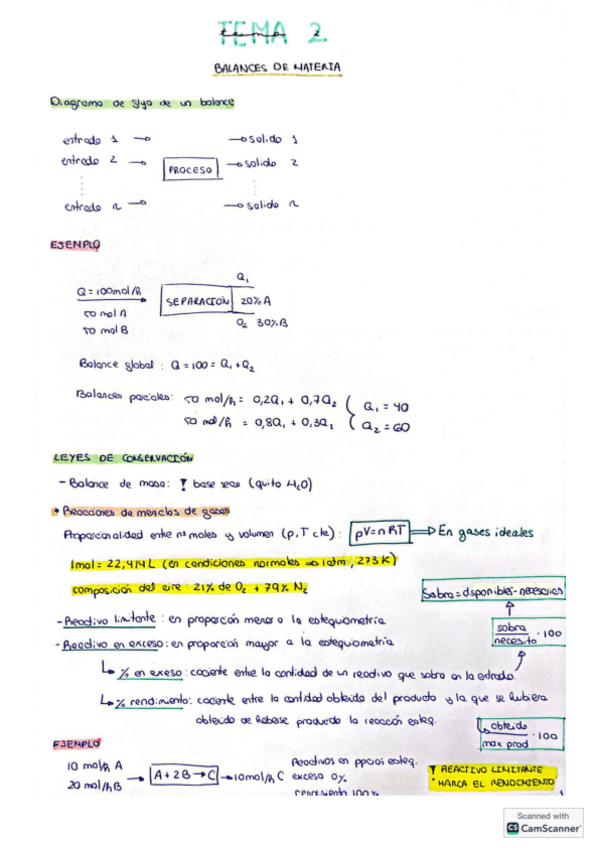 TEMA 2
BALANCES DE MATERIA
Diagrama de flujo de un balance
entrada 1 → → salida 1
entrada 2 → PROCESO → salida 2
entrada n → → salida n
EJEMPLO
Q₁
Q = 100 mol/h SEPARACIÓN 20% A
50 mol A Q₂ 30% B
50 mol B
Balance global : Q = 100 = Q₁ + Q₂
Balances parciales: 50 mol/h = 0,2Q₁ + 0,7Q₂ Q₁ = 40
50 mol/h = 0,8Q₁ + 0,3Q₂ Q₂ = 60
LEYES DE CONSERVACIÓN
- Balance de masa: ! base seca (quito H₂O)
• Reacciones de mezclas de gases
Proporcionalidad entre nº moles y volumen (p, T cte) : pV = nRT ⇒ En gases ideales
1mol = 22,414 L (en condiciones normales ⇒ 1atm, 273 K)
composición del aire : 21% de O₂ + 79% N₂
Sobra = disponibles - necesarios
- Reactivo limitante : en proporción menor a la estequiometría
sobra
necesito · 100
- Reactivo en exceso : en proporción mayor a la estequiometría
↳ % en exceso : cociente entre la cantidad de un reactivo que sobra en la entrada.
↳ % rendimiento : cociente entre la cantidad obtenida del producto y la que se hubiera
obtenido de haberse producido la reacción esteq.
obtenido
max prod · 100
EJEMPLO
10 mol/h A Reactivos en ppcion esteq.
→ A + 2B → C → 10mol/h C exceso 0%
20 mol/h B rendimiento 100%
! REACTIVO LIMITANTE
" MARCA EL RENDIMIENTO
Scanned with
CS CamScanner